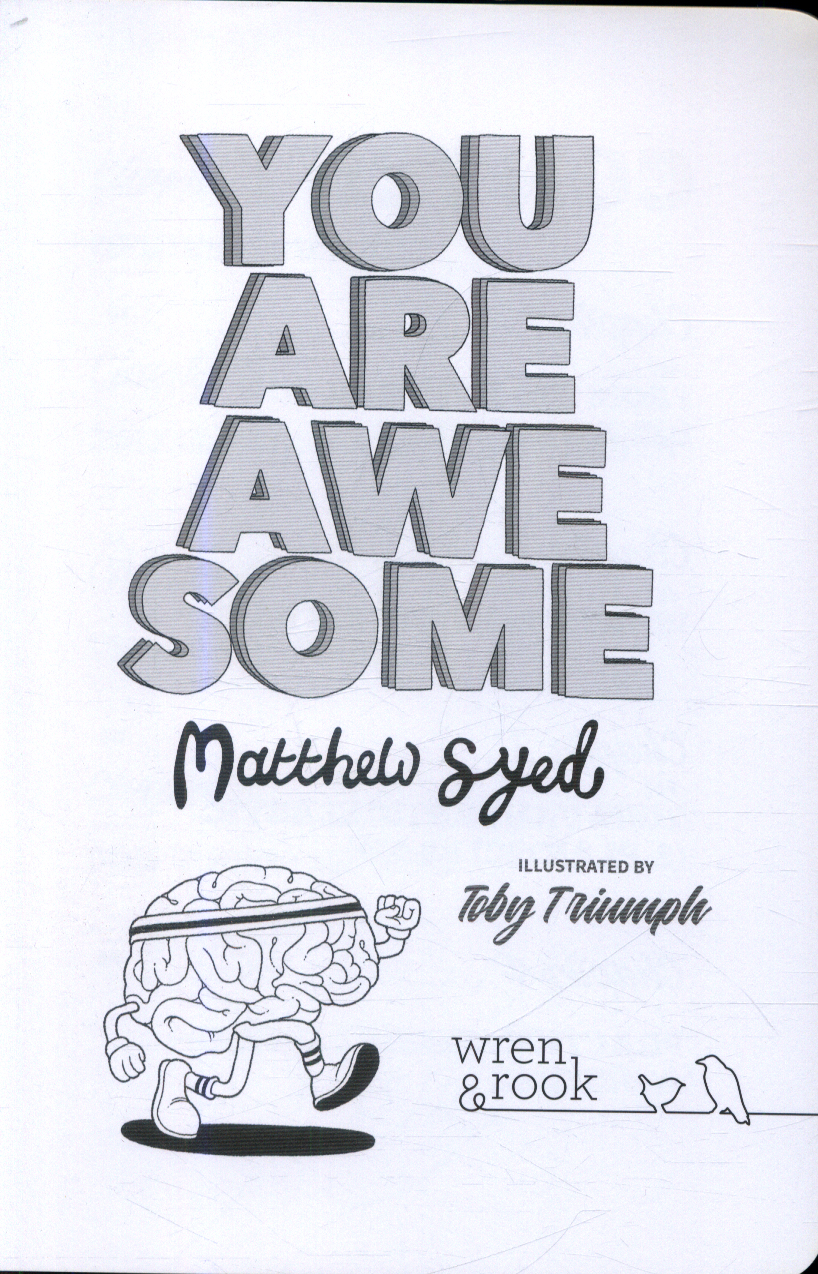 YOU
ARE
AWE
SOME
Matthew Syed
ILLUSTRATED BY
Toby Triumph
wren
&rook